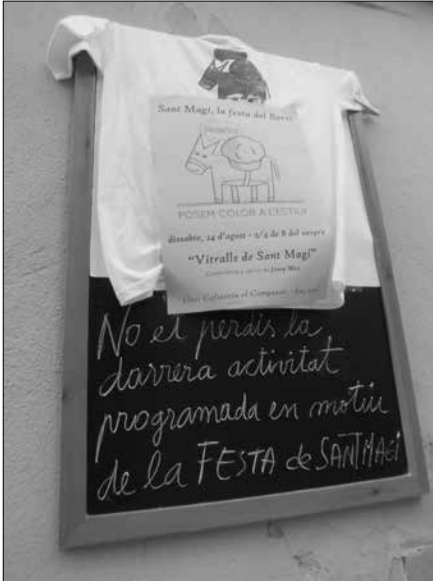 Sant Magí, la festa del Barri
POSEM COLOR A L'ESTIU
dissabte, 24 d'agost - 2/4 de 8 del vespre
"Vitralls de Sant Magí"
Josep Mas
Cafeteria el Campanar
No et perdis la
darrera activitat
programada en motiu
de la FESTA de SANT MAGÍ